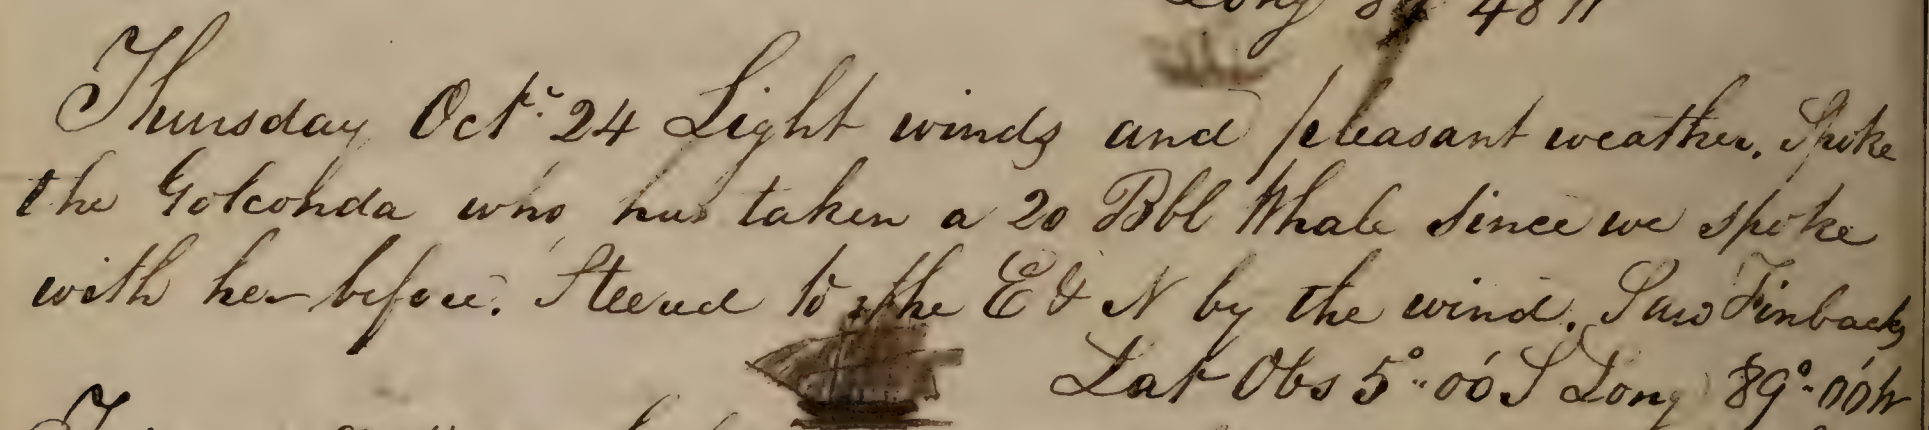 Long 89 48 W
Thursday Oct. 24 Light winds and pleasant weather. Spoke
the Golconda who has taken a 20 Bbl Whale since we spoke
with her before. Steered to the E & N by the wind. Saw Finbacks
Lat Obs 5°.00' S Long 89°.00' W